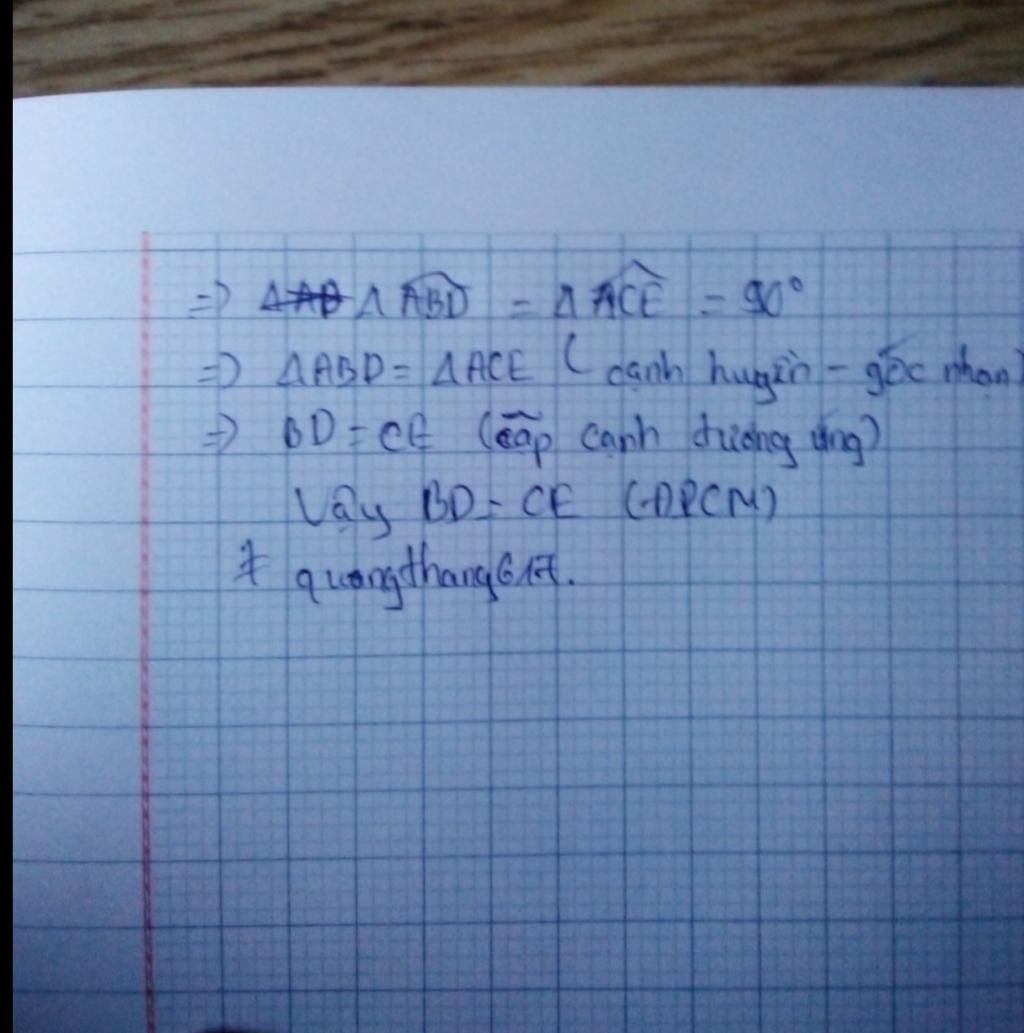 => Δ ABD̂ = Δ ACÊ = 90°
=> ΔABD = ΔACE ( cạnh huyền - góc nhọn)
=> BD = CE (cặp cạnh tương ứng)
Vậy BD = CE (ĐPCM)
# quangthang617.